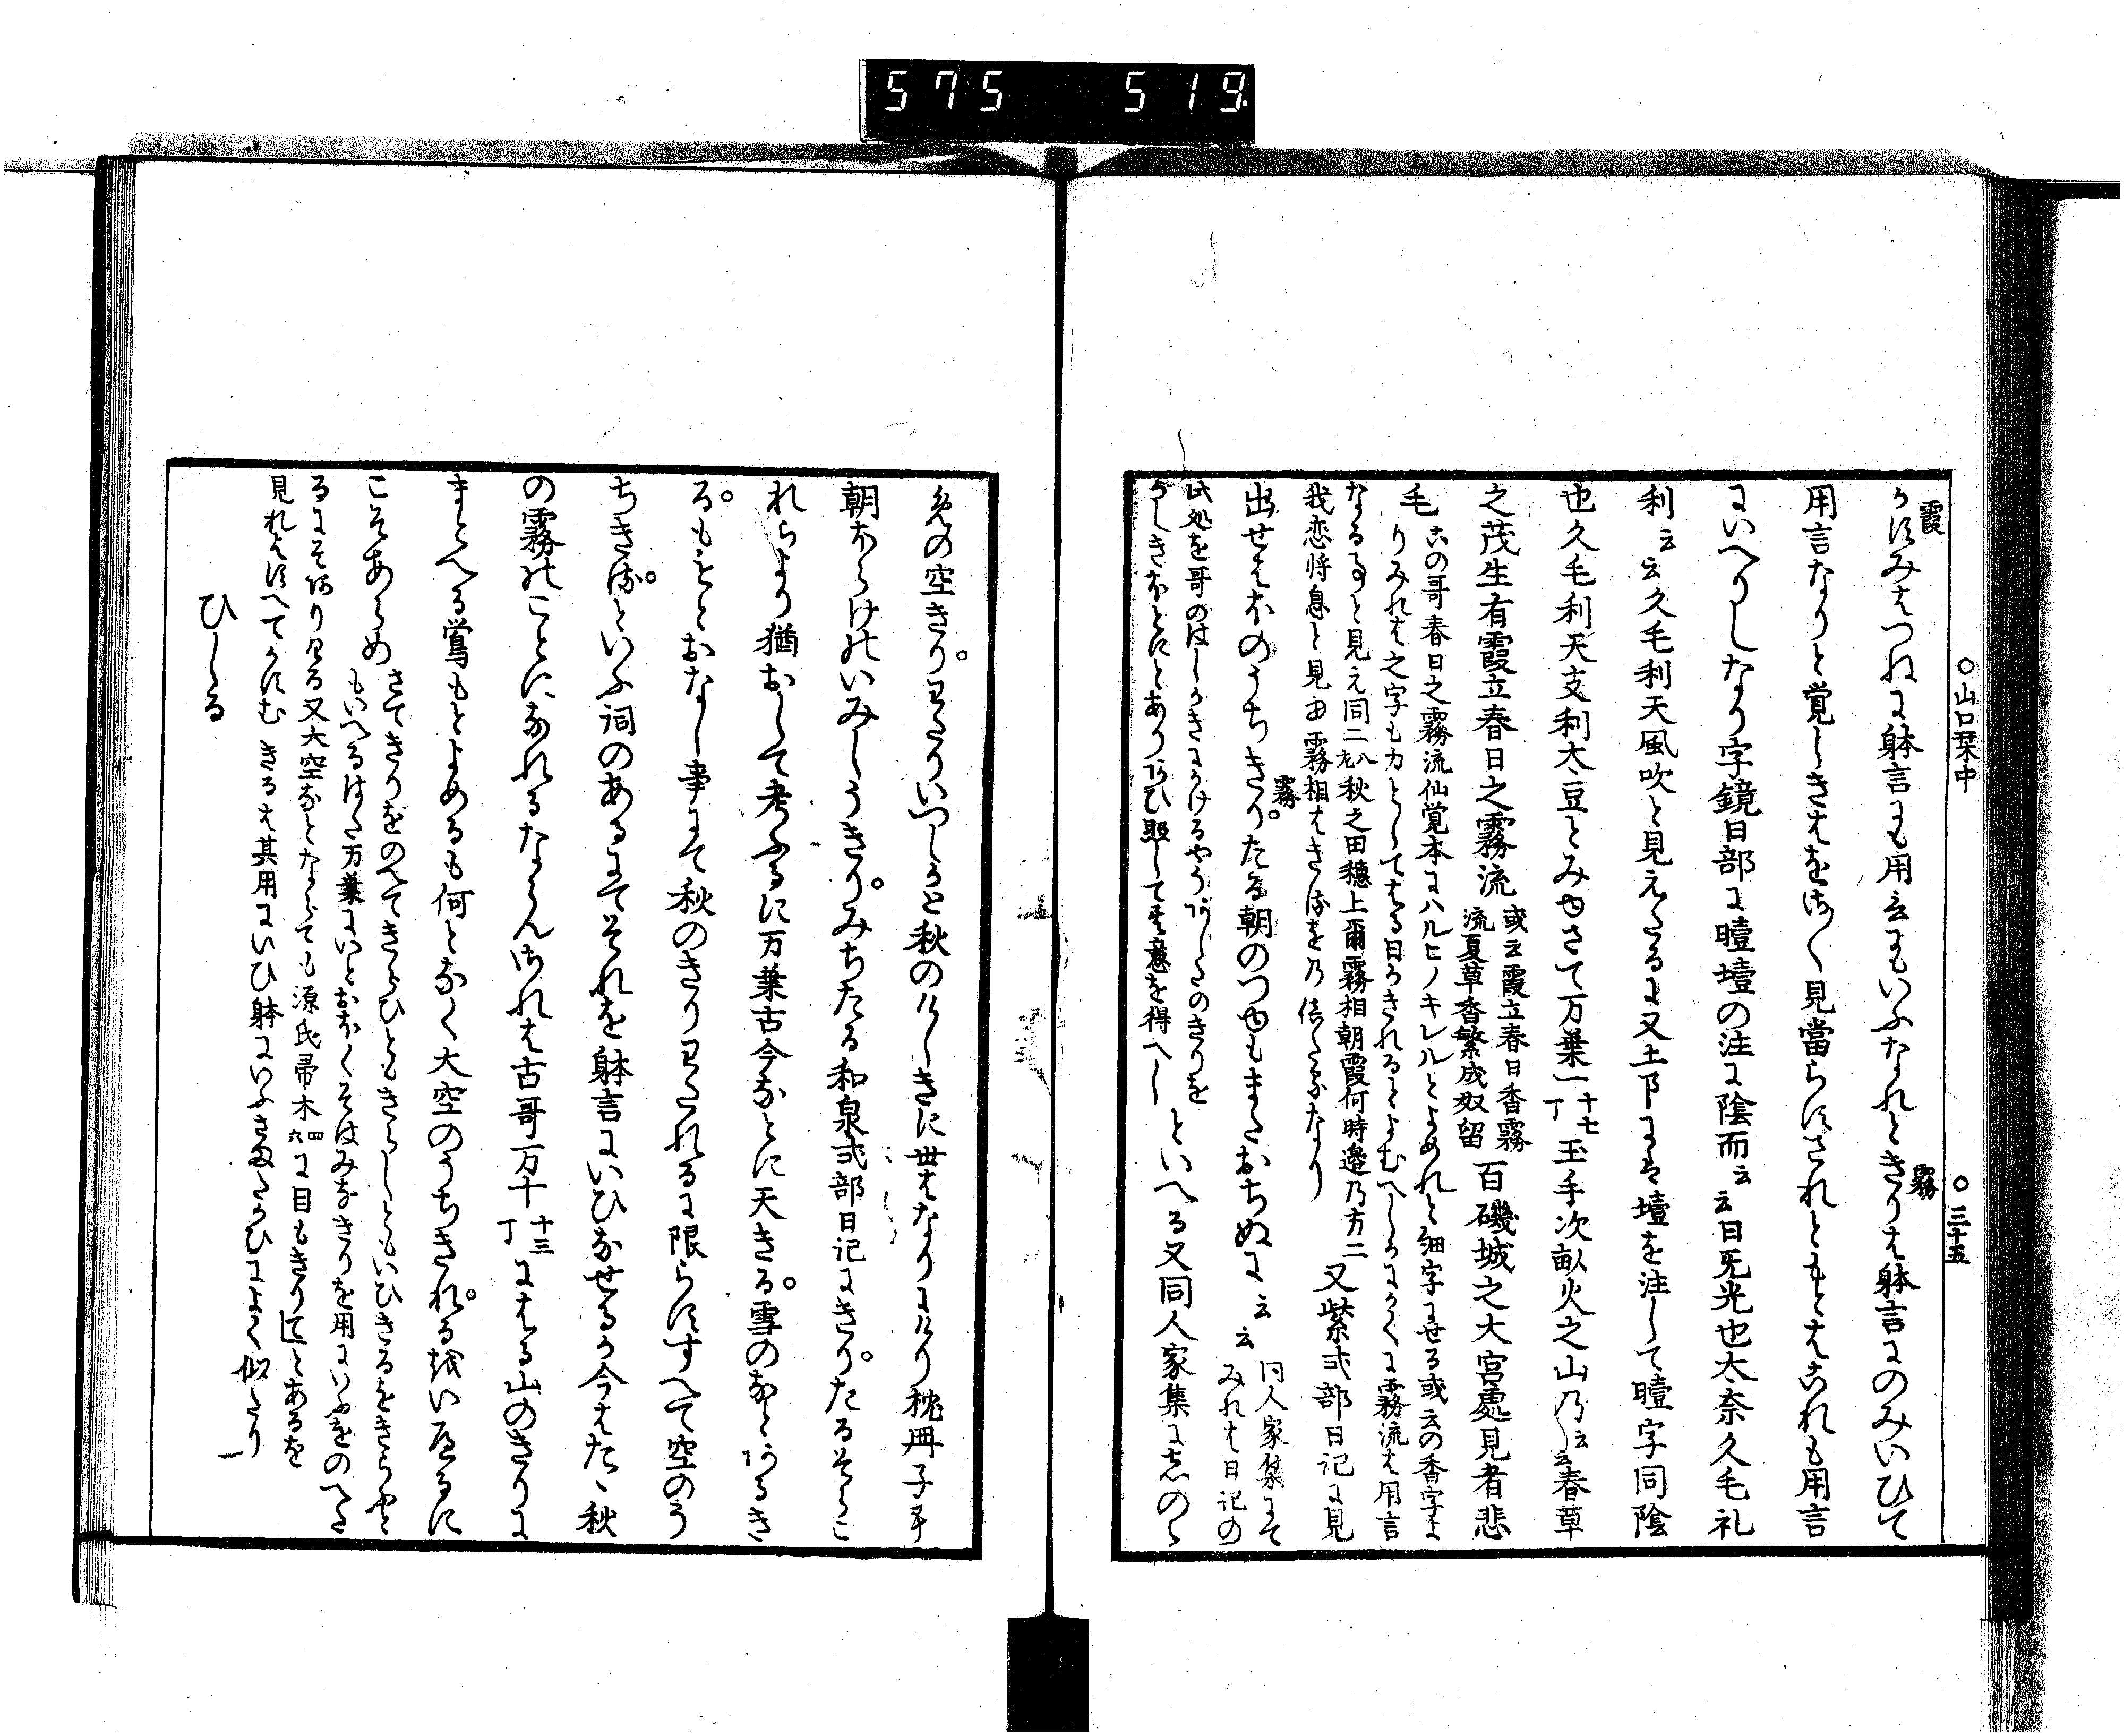 575 519
○山口栞中 ○三十五
霞
かすみはつねに躰言にも用言にもいふなれときりは躰言にのみいひて
霧
用言なりと覚しきはをさ〱見當らすされとももとはこれも用言
にいへりしなり字鏡日部に曀壒の注に陰而云云日无光也太奈久毛礼
利云云久毛利天風吹と見えたるに又土部にも壒を注して曀字同陰
也久毛利天支利太豆とみゆさて万葉一十七丁玉手次畝火之山乃云云春草
之茂生有霞立春日之霧流
或云霞立春日香霧
流夏草香繁成奴留
百礒城之大宮處見者悲
毛
この哥春日之霧流仙覚本にハルヒノキレルとよめれと細字にせる或云の香字に
りみれは之字もカとしてはる日かきれるとよむへしかにかくに霧流は用言
なる事と見え同二八秋之田穂上爾霧相朝霞何時邊乃方二
我恋将息と見由霧相はきらふを乃佶たるなり
又紫式部日記に見
出せはほのうちきりたる朝のつゆもまたおちぬに云云
霧
同人家集にて
みれは日記の
此処を哥のはしかきにかけるやうあしたのきりを
かしきほとにとありおもひ照して其意を得へし
といへる又同人家集にしのゝ
めの空きりわたりいつしかと秋のけしきに世はなりにけり枕冊子
朝ほらけのいみしうきりみちたる和泉式部日記にきりたるそらこ
れらより猶おして考ふるに万葉古今なとに天きる雪のなとあるき
るもとおなし事にて秋のきりわたれるに限らすすへて空のう
ちきらすといふ詞のあるにてそれを躰言にいひなせるか今はたゝ秋
の霧のことになれるならんされは古哥万十十三丁にはる山のきりに
まとへる鴬もとよめるも何となく大空のうちきれるをいへるに
こそあらめ
さてきりをのへてきらひともきらしともいひきるをきらふと
もいへるはた万葉にいとおほくそはみなきりを用にいふをのへた
るにそありける又大空なとならても源氏帚木四六に目もきりてとあるを
見れはすへてかすむきるは其用にいひ躰にいふさまたかひによく似たり
ひしる